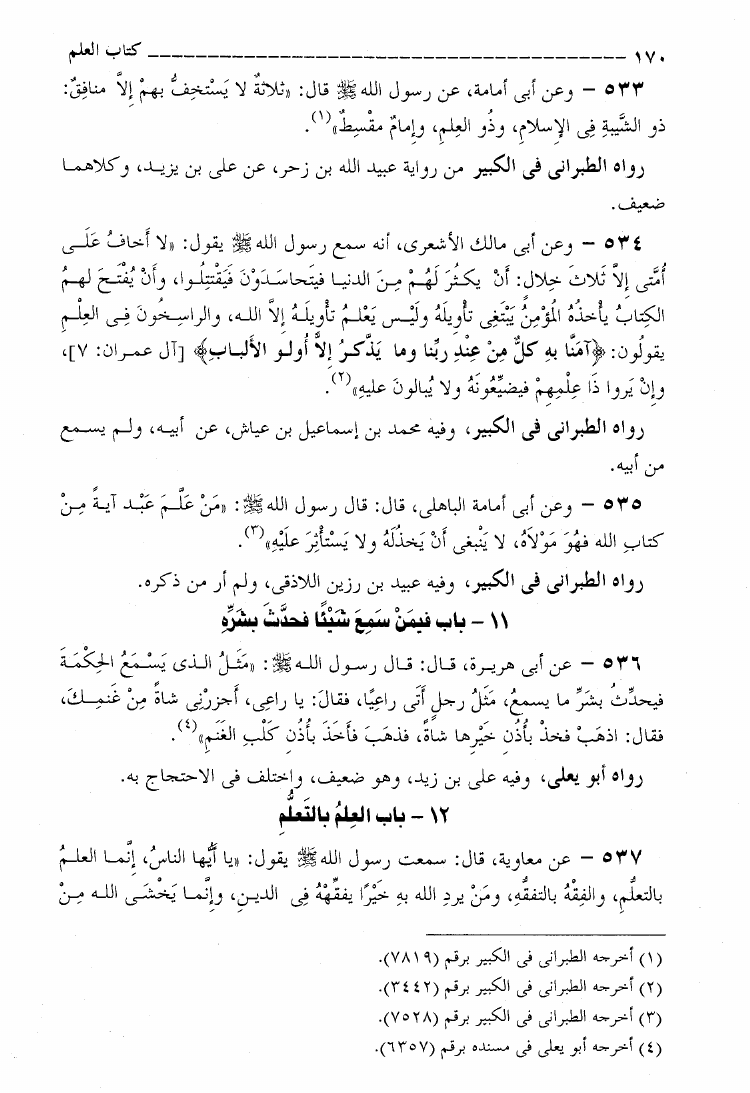 ١٧٠ ــــــــــــــــــــــــــــــــــــــــــــــــــــــــــــ كتاب العلم
٥٣٣ – وعن أبى أمامة، عن رسول الله ﷺ قال: «ثلاثةٌ لا يَسْتخِفُّ بهمْ إلاَّ منافِقٌ:
ذو الشَّيبةِ فِى الإسلامِ، وذُو العِلمِ، وإمامٌ مقْسِطٌ»(١).
رواه الطبرانى فى الكبير من رواية عبيد الله بن زحر، عن على بن يزيد، وكلاهما
ضعيف.
٥٣٤ – وعن أبى مالك الأشعرى، أنه سمع رسول الله ﷺ يقول: «لا أخافُ عَلَى
أُمَّتى إلاَّ ثلاثَ خلالٍ: أنْ يكثُرَ لَهُمْ مِنَ الدنيا فيتحاسَدَوْنَ فَيَقْتتِلُوا، وأنْ يُفْتَحَ لهمُ
الكِتابُ يأخذُهُ المُؤمِنُ يَبْتَغِى تأويلَهُ ولَيْس يَعْلمُ تأويلَهُ إلاَّ اللهُ، والراسِخُونَ فِى العِلْمِ
يقولُون: ﴿آمَنَّا بهِ كلٌّ مِنْ عِندِ ربِّنا وما يَذَّكرُ إلاَّ أُولو الألبابِ﴾ [آل عمران: ٧]،
وإنْ يَروا ذَا عِلْمِهِمْ فيضيِّعُونَهُ ولا يُبالونَ عليهِ»(٢).
رواه الطبرانى فى الكبير، وفيه محمد بن إسماعيل بن عياش، عن أبيه، ولم يسمع
من أبيه.
٥٣٥ – وعن أبى أمامة الباهلى، قال: قال رسول الله ﷺ: «مَنْ علَّمَ عَبْد آيةً مِنْ
كتابِ الله فهُوَ مَوْلاَهُ، لا يَنْبغى أنْ يَخذُلَهُ ولا يَسْتأْثِرَ علَيْهِ»(٣).
رواه الطبرانى فى الكبير، وفيه عبيد بن رزين اللاذقى، ولم أر من ذكره.
١١ – باب فيمَنْ سَمِعَ شَيْئًا فحدَّثَ بشَرِّهِ
٥٣٦ – عن أبى هريرة، قال: قال رسول الله ﷺ: «مَثَلُ الذى يَسْمَعُ الحِكْمَةَ
فيحدِّثُ بشَرِّ ما يسمعُ، مَثَلُ رجلٍ أتَى راعِيًا، فقالَ: يا راعِى، أجزرْنِى شاةً مِنْ غَنمِكَ،
فقال: اذهَبْ فخذْ بأُذُنِ خَيْرِها شاةً، فذهَبَ فأخَذَ بأُذُنِ كَلْبِ الغَنَمِ»(٤).
رواه أبو يعلى، وفيه على بن زيد، وهو ضعيف، واختلف فى الاحتجاج به.
١٢ – باب العِلمُ بالتَعلُّمِ
٥٣٧ – عن معاوية، قال: سمعت رسول الله ﷺ يقول: «يا أيُّها الناسُ، إنَّما العلمُ
بالتعلُّمِ، والفِقْهُ بالتفقُّهِ، ومَنْ يردِ الله بهِ خَيْرًا يفقِّهْهُ فِى الدينِ، وإنَّما يَخْشَى الله مِنْ
(١) أخرجه الطبرانى فى الكبير برقم (٧٨١٩).
(٢) أخرجه الطبرانى فى الكبير برقم (٣٤٤٢).
(٣) أخرجه الطبرانى فى الكبير برقم (٧٥٢٨).
(٤) أخرجه أبو يعلى فى مسنده برقم (٦٣٥٧).